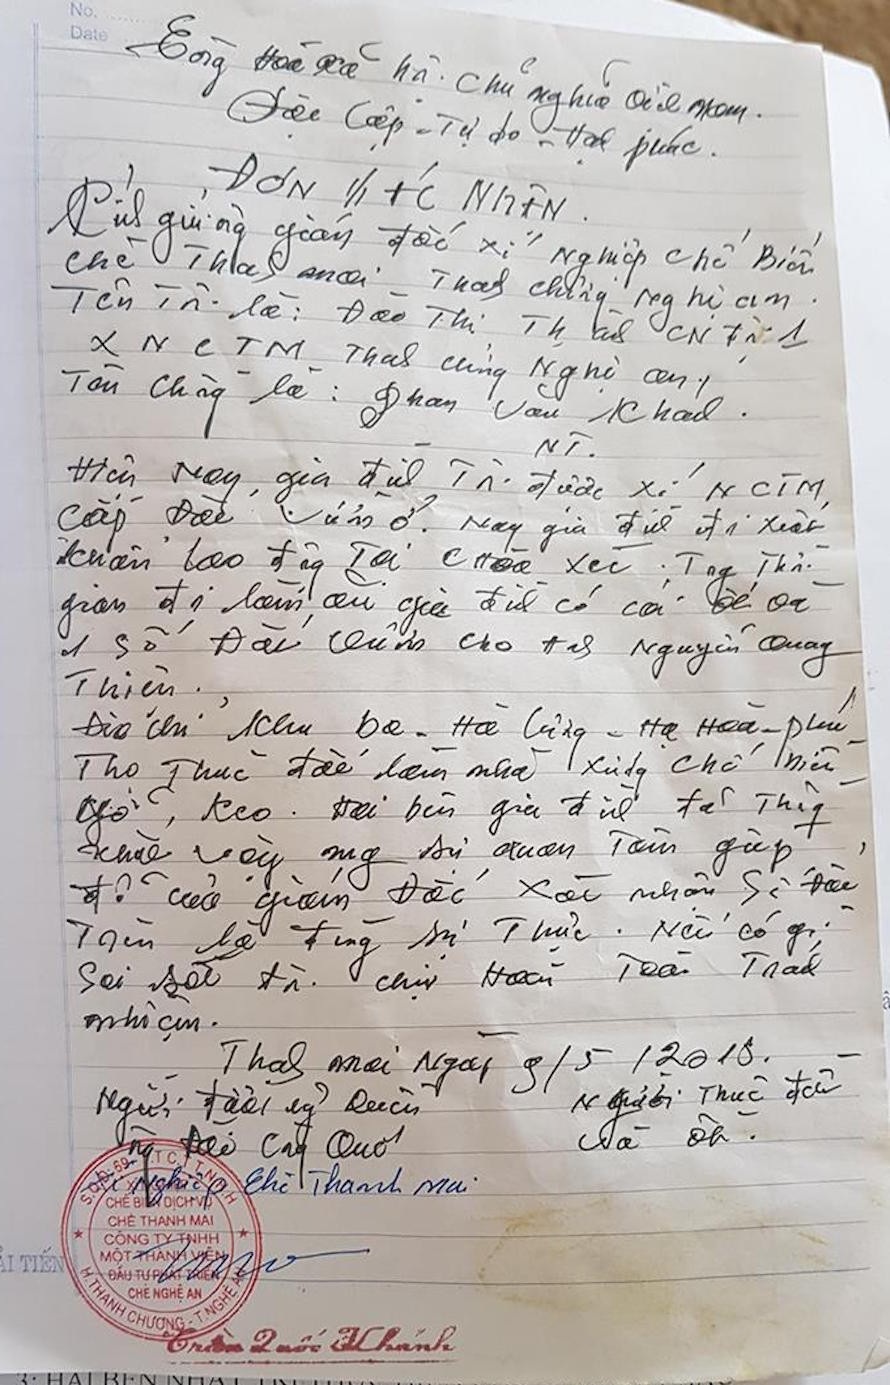 No.
Date
Cộng Hoà xã hội chủ nghĩa việt nam.
Độc Lập - Tự do - Hạnh phúc.
ĐƠN XÁC NHẬN.
Kính gửi: ông giám đốc xí Nghiệp chế Biến
chè Thanh mai Thanh chương Nghệ an.
Tên Tôi là: Đào Thị CN Đội 1
XNCTM Thanh chương Nghệ an,
Tên chồng là: phan văn Khanh.
NT.
Hiện Nay, gia đình Tôi được xí NCTM
cấp Đất vườn ở. Nay gia đình đi xuất
khẩu lao động Tại. Trong Thời
gian đi làm ăn gia đình có cái
1 Số Đất vườn cho anh Nguyễn Quang
Thiên.
Địa chỉ Khu ba - Hà Lương - Hạ Hoà - phú
Thọ Thuê đất làm nhà xưởng chế biến
gỗ, keo. Hai bên gia đình đã Thống
vậy mong sự quan Tâm giúp
đỡ của giám Đốc xác nhận Số Đất
Trên là đúng sự Thực. Nếu có gì
Sai sót tôi chịu Hoàn Toàn Trách
nhiệm.
Thanh mai Ngày 9/5/2018.
Người đại Người Thuê đất
và ở.
Xí Nghiệp Chè Thanh Mai
CHẾ BIẾN DỊCH VỤ
CHÈ THANH MAI
CÔNG TY TNHH
MỘT THÀNH VIÊN
ĐẦU TƯ PHÁT TRIỂN
CHÈ NGHỆ AN
H.THANH CHƯƠNG - T.NGHỆ AN
Trần Quốc Khánh
ẢI TIẾN
3: HAI BÊN NHẤT TRÍ